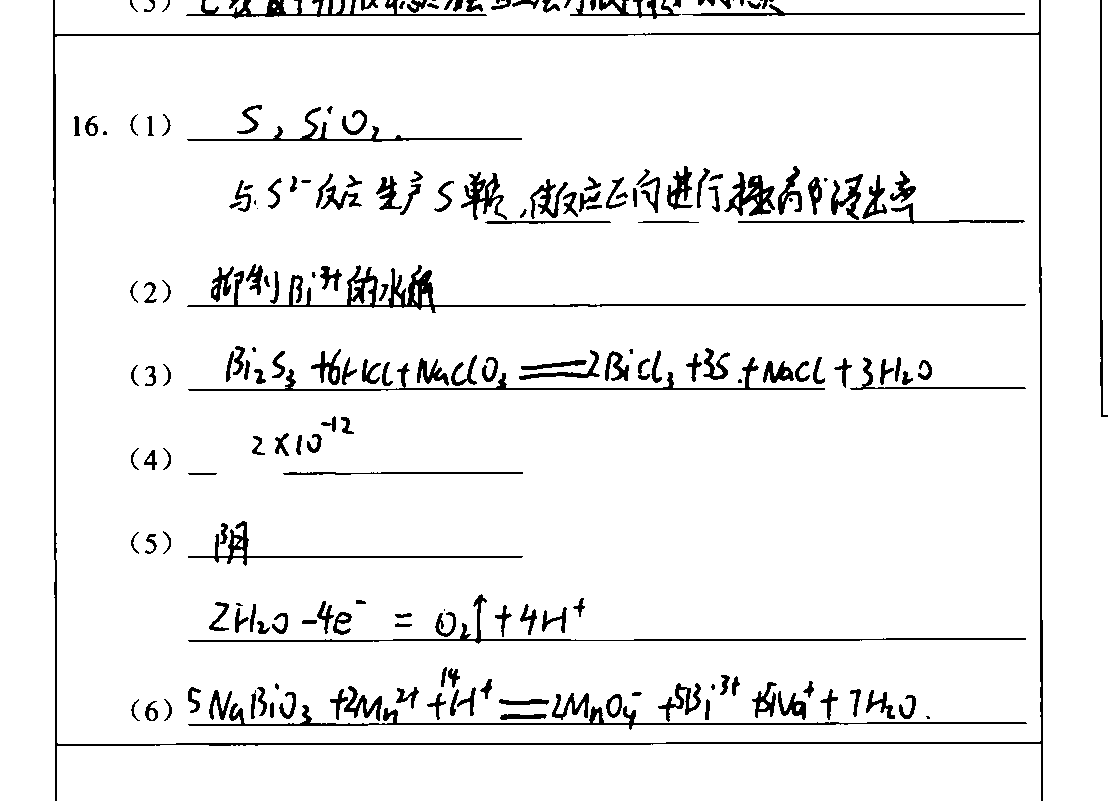 16.（1）S，SiO₂.
与S²⁻反应生产S单质，使反应正向进行提高 浸出率
（2）抑制Bi³⁺的水解
（3）Bi₂S₃+6HCl+NaClO₃═2BiCl₃+3S+NaCl+3H₂O
（4）2×10⁻¹²
（5）阴
2H₂O-4e⁻=O₂↑+4H⁺
（6）5NaBiO₃+2Mn²⁺+14H⁺═2MnO₄⁻+5Bi³⁺+5Na⁺+7H₂O.